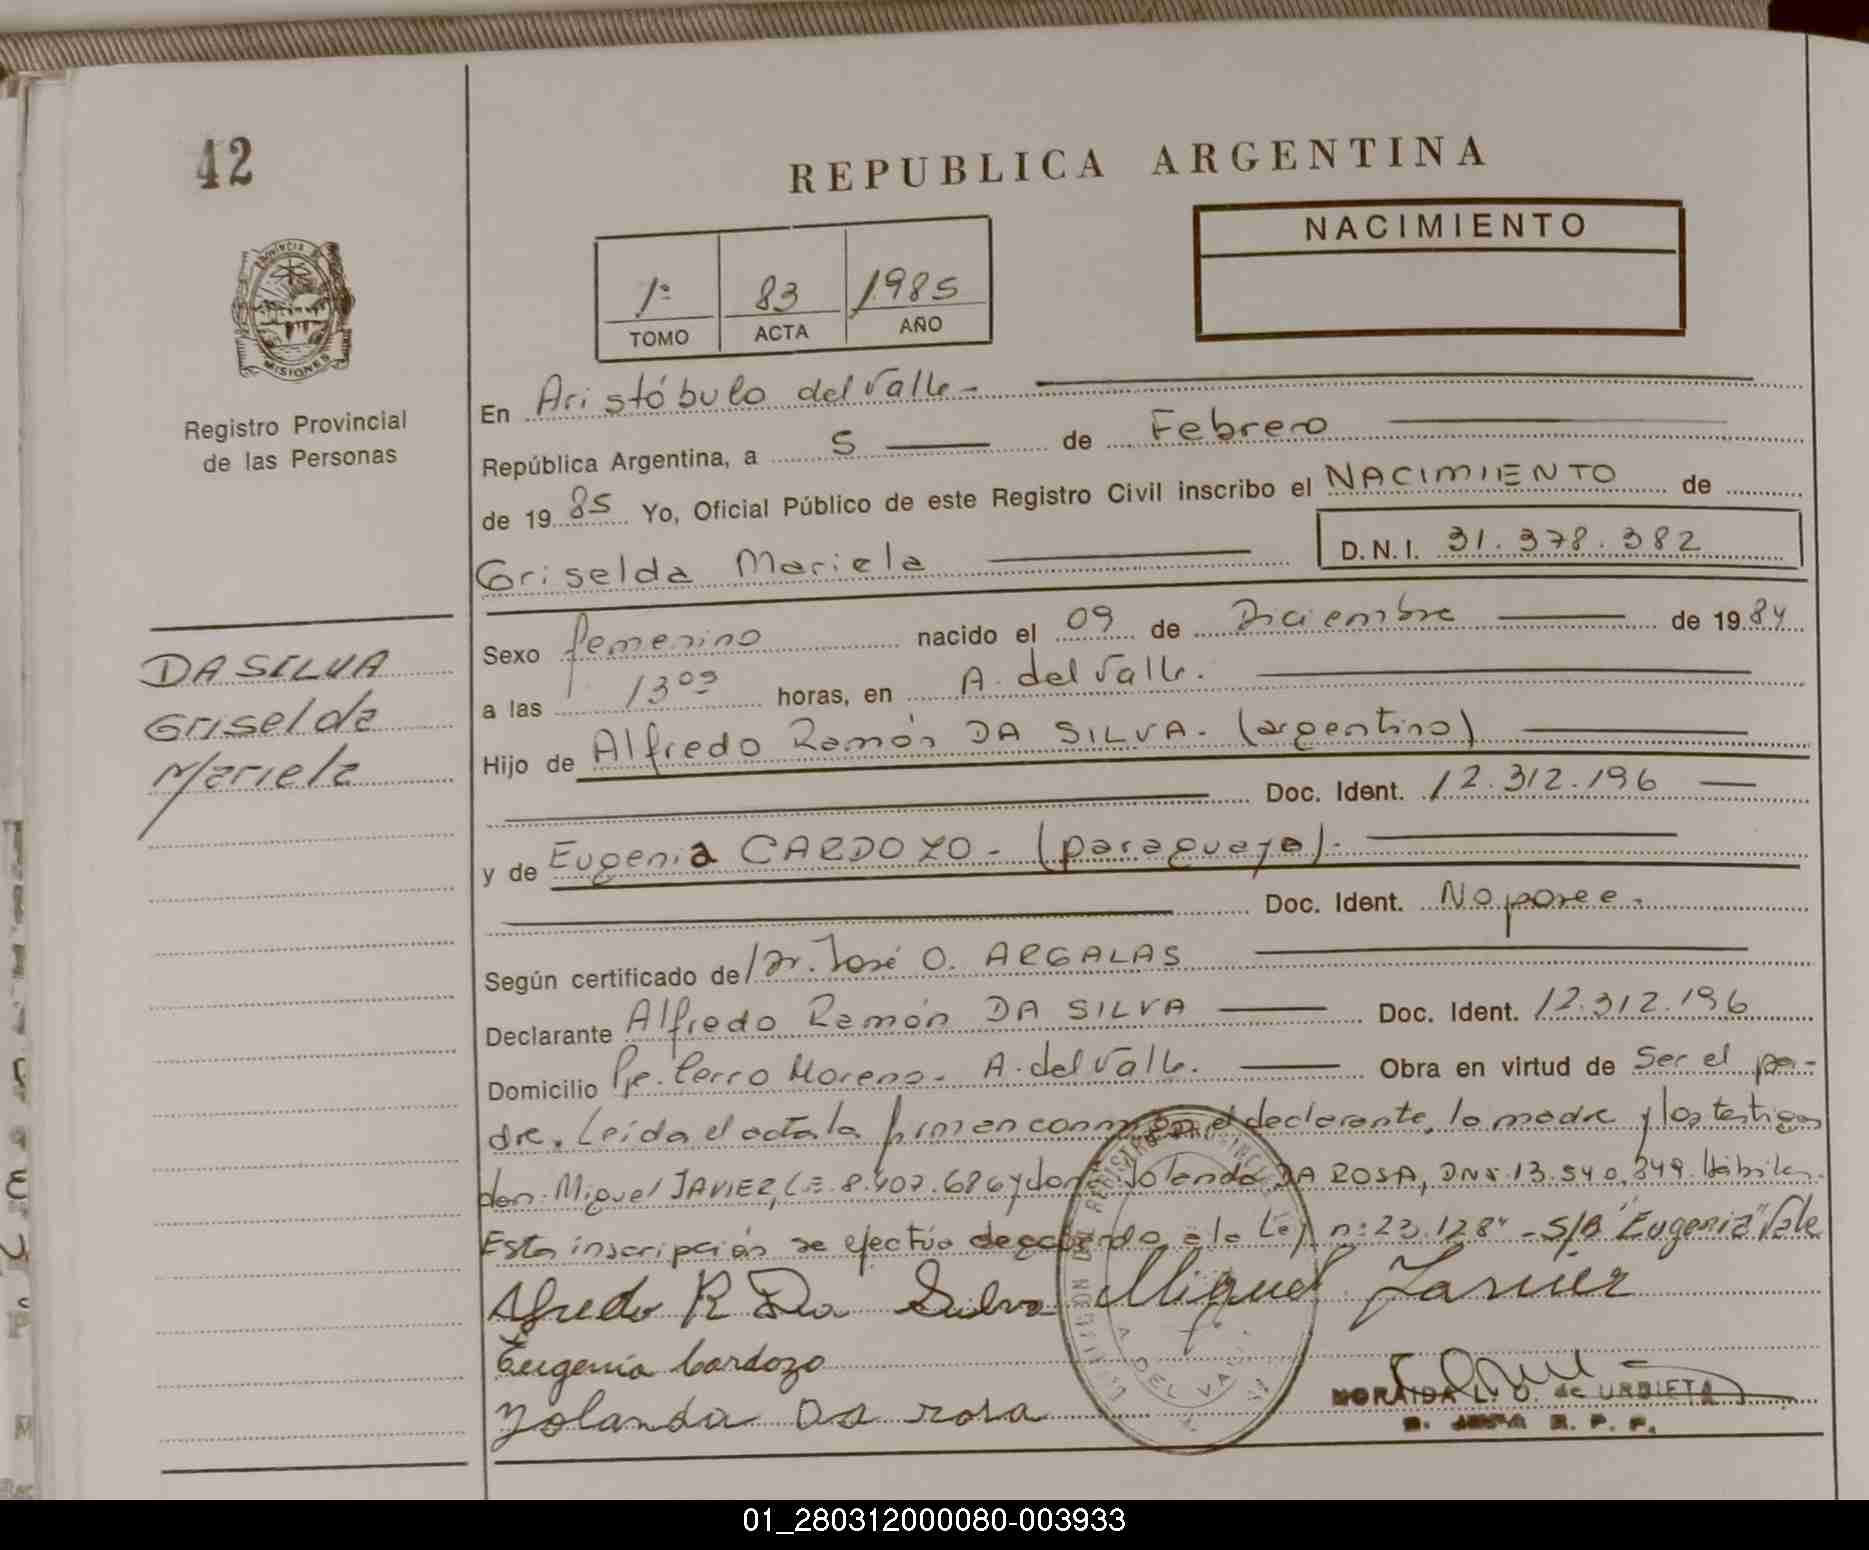 42
REPUBLICA ARGENTINA
NACIMIENTO
1º 83 1985
TOMO ACTA AÑO
PROVINCIA DE
MISIONES
Registro Provincial
de las Personas
En Aristóbulo del Valle -
República Argentina, a 5 de Febrero
de 1985 Yo, Oficial Público de este Registro Civil inscribo el NACIMIENTO de
Griselda Mariela D.N.I. 31.378.382
DA SILVA
Griselda
Mariela
Sexo femenino nacido el 09 de Diciembre de 1984
a las 13 horas, en A. del Valle.
Hijo de Alfredo Ramón DA SILVA. (argentino)
Doc. Ident. 12.312.196
y de Eugenia CARDOZO - (paraguaya).
Doc. Ident. No posee.
Según certificado de/ Dr. José O. ARGALAS
Declarante Alfredo Ramón DA SILVA Doc. Ident. 12.312.196
Domicilio Pje. Cerro Moreno. A. del Valle. Obra en virtud de Ser el pa-
dre. Leída el acta la firman conmigo el declarante, la madre y los testigos
don Miguel JAVIER, L.E. 8.407.686 y doña Yolanda DA ROSA, DNI. 13.540.349. Hábiles.
Esta inscripción se efectúa de acuerdo a la Ley nº 23.128" - S/B "Eugenia" Vale
Alfredo R Da Silva Miguel Javier
Eugenia Cardozo
Yolanda Da rosa
MORAIDA L. O. de URBIETA
R. P. P.
A. DEL VALLE
01_280312000080-003933